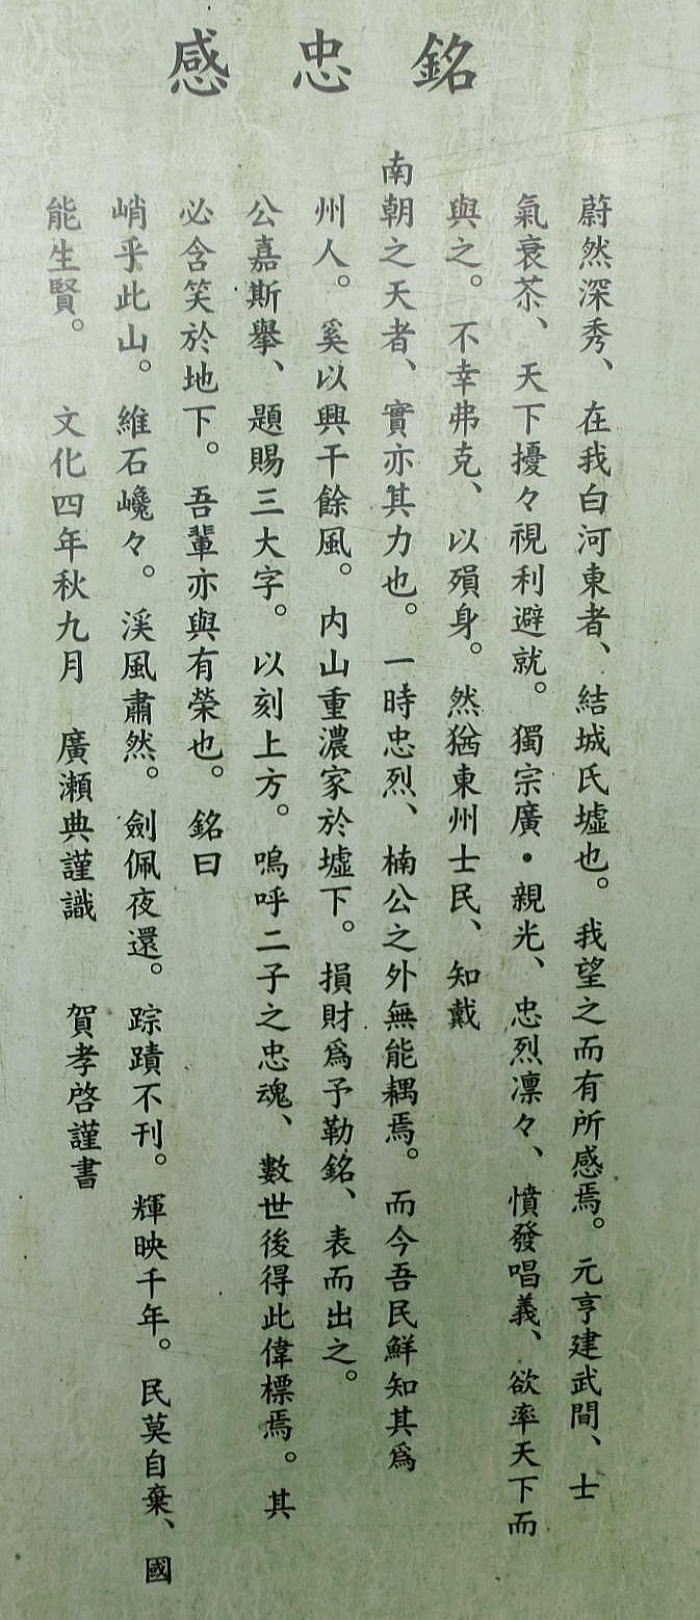 感忠銘
蔚然深秀、在我白河東者、結城氏墟也。我望之而有所感焉。元亨建武間、士
氣衰苶、天下擾々視利避就。獨宗廣・親光、忠烈凛々、憤發唱義、欲率天下而
與之。不幸弗克、以殞身。然猶東州士民、知戴
南朝之天者、實亦其力也。一時忠烈、楠公之外無能耦焉。而今吾民鮮知其爲
州人。奚以興干餘風。内山重濃家於墟下。損財爲予勒銘、表而出之。
公嘉斯擧、題賜三大字。以刻上方。嗚呼二子之忠魂、數世後得此偉標焉。其
必含笑於地下。吾輩亦與有榮也。銘曰
峭乎此山。維石巉々。渓風肅然。劍佩夜還。踪蹟不刊。輝映千年。民莫自棄、國
能生賢。 文化四年秋九月 廣瀬典謹識 賀孝啓謹書